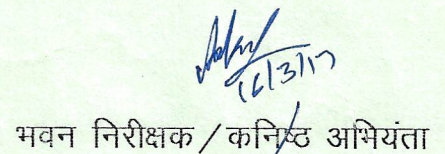 16/3/17
भवन निरीक्षक / कनिष्ठ अभियंता